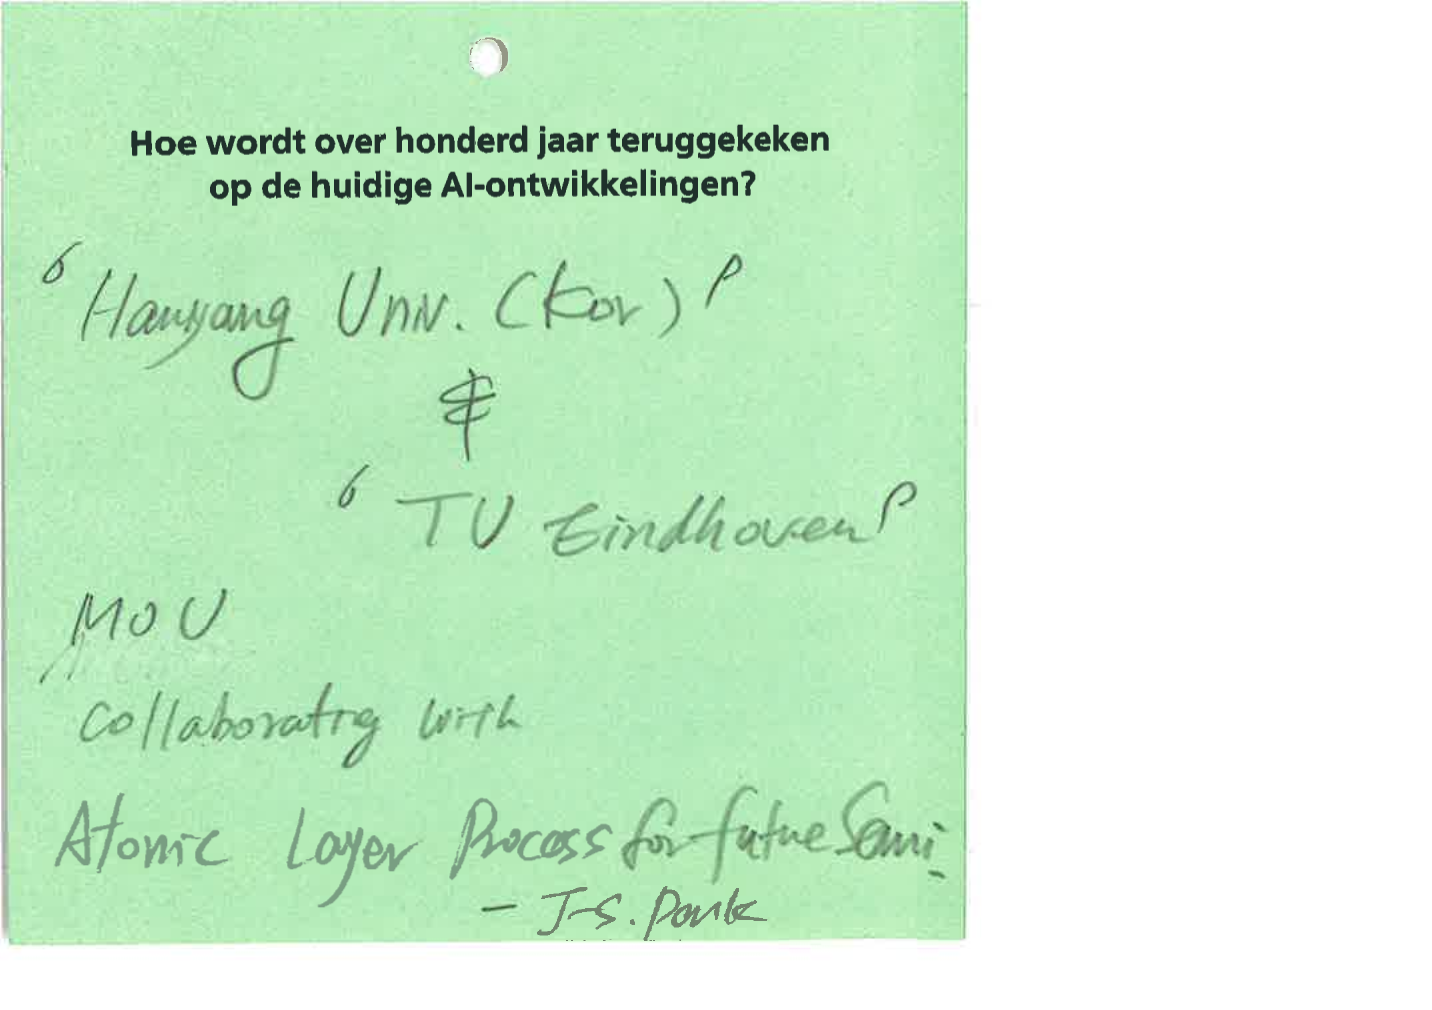 Hoe wordt over honderd jaar teruggekeken
op de huidige AI-ontwikkelingen?
‘Hanyang Univ. (Kor)’
&
‘TU Eindhoven’
MOU
Collaboratig with
Atomic Layer Process for future Semi.
- J-S. Park